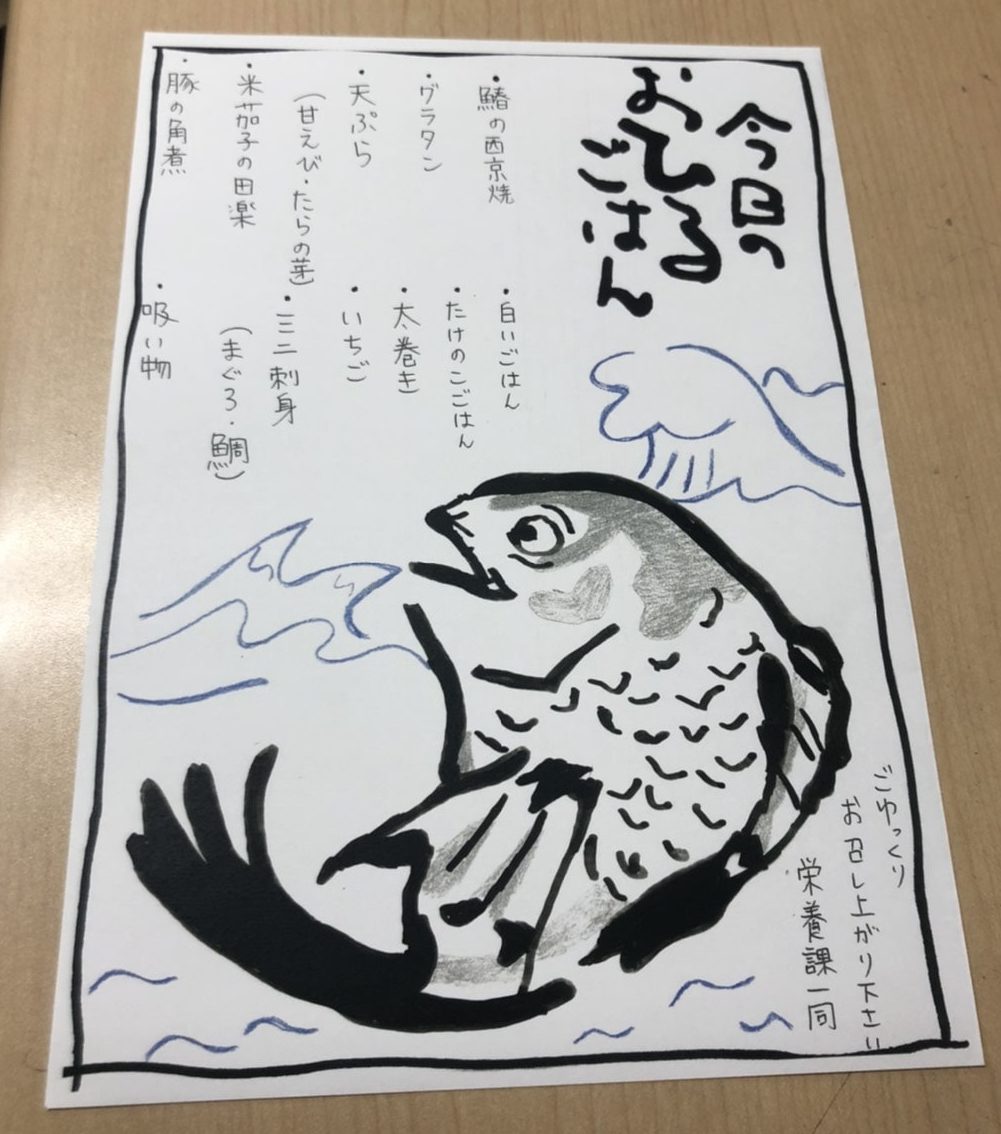 今日の
おひる
ごはん
・鰆の西京焼
・グラタン
・天ぷら
(甘えび・たらの芽)
・米茄子の田楽
・豚の角煮
・白いごはん
・たけのこごはん
・太巻き
・いちご
・ミニ刺身
(まぐろ・鯛)
・吸い物
ごゆっくり
お召し上がり下さい
栄養課一同